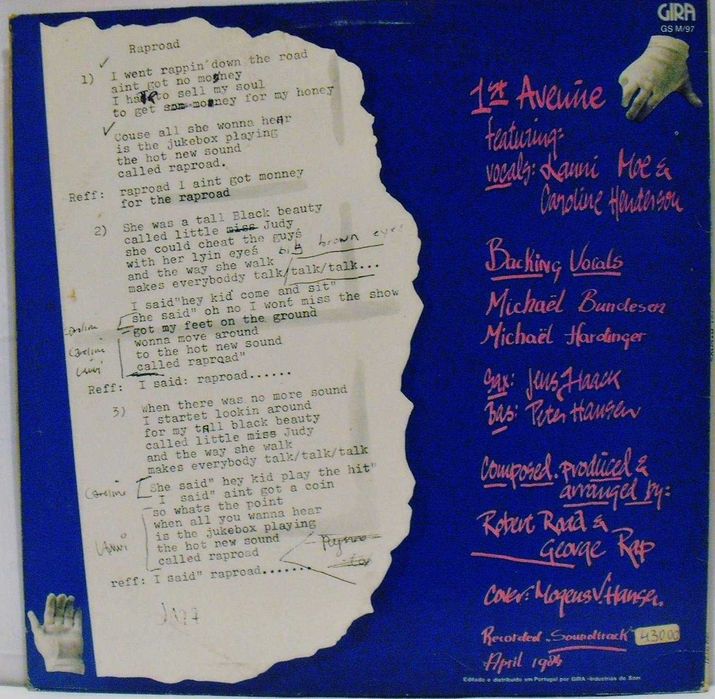 Raproad
1) I went rappin'down the road
aint got no money
I had to sell my soul
to get some money for my honey
Couse all she wonna hear
is the jukebox playing
the hot new sound
called raproad.
Reff: raproad I aint got monney
for the raproad
2) She was a tall Black beauty
called little miss Judy
she could cheat the guys
with her lyin eyes big brown eyes
and the way she walk
makes everyboddy talk/talk/talk...
I said"hey kid come and sit"
she said" oh no I wont miss the show
got my feet on the ground
wonna move around
to the hot new sound
called raproad"
Reff: I said: raproad......
3) when there was no more sound
I startet lookin around
for my tall black beauty
called little miss Judy
and the way she walk
makes everybody talk/talk/talk
She said" hey kid play the hit"
I said" aint got a coin
so whats the point
when all you wanna hear
is the jukebox playing
the hot new sound
called raproad
reff: I said" raproad.......
GIRA
GS M/97
1st Avenue
featuring:
vocals: Lanni Moe &
Caroline Henderson
Backing Vocals
Michaël Bundesen
Michaël Hardinger
Sax: Jens Haack
Bas: Peter Hansen
Composed. produced &
arranged by:
Robert Road &
George Rap
Cover: Mogens V. Hansen.
Recorded „Soundtrack"
April 1984
43000
Editado e distribuido em Portugal por GIRA -Industrias de Som